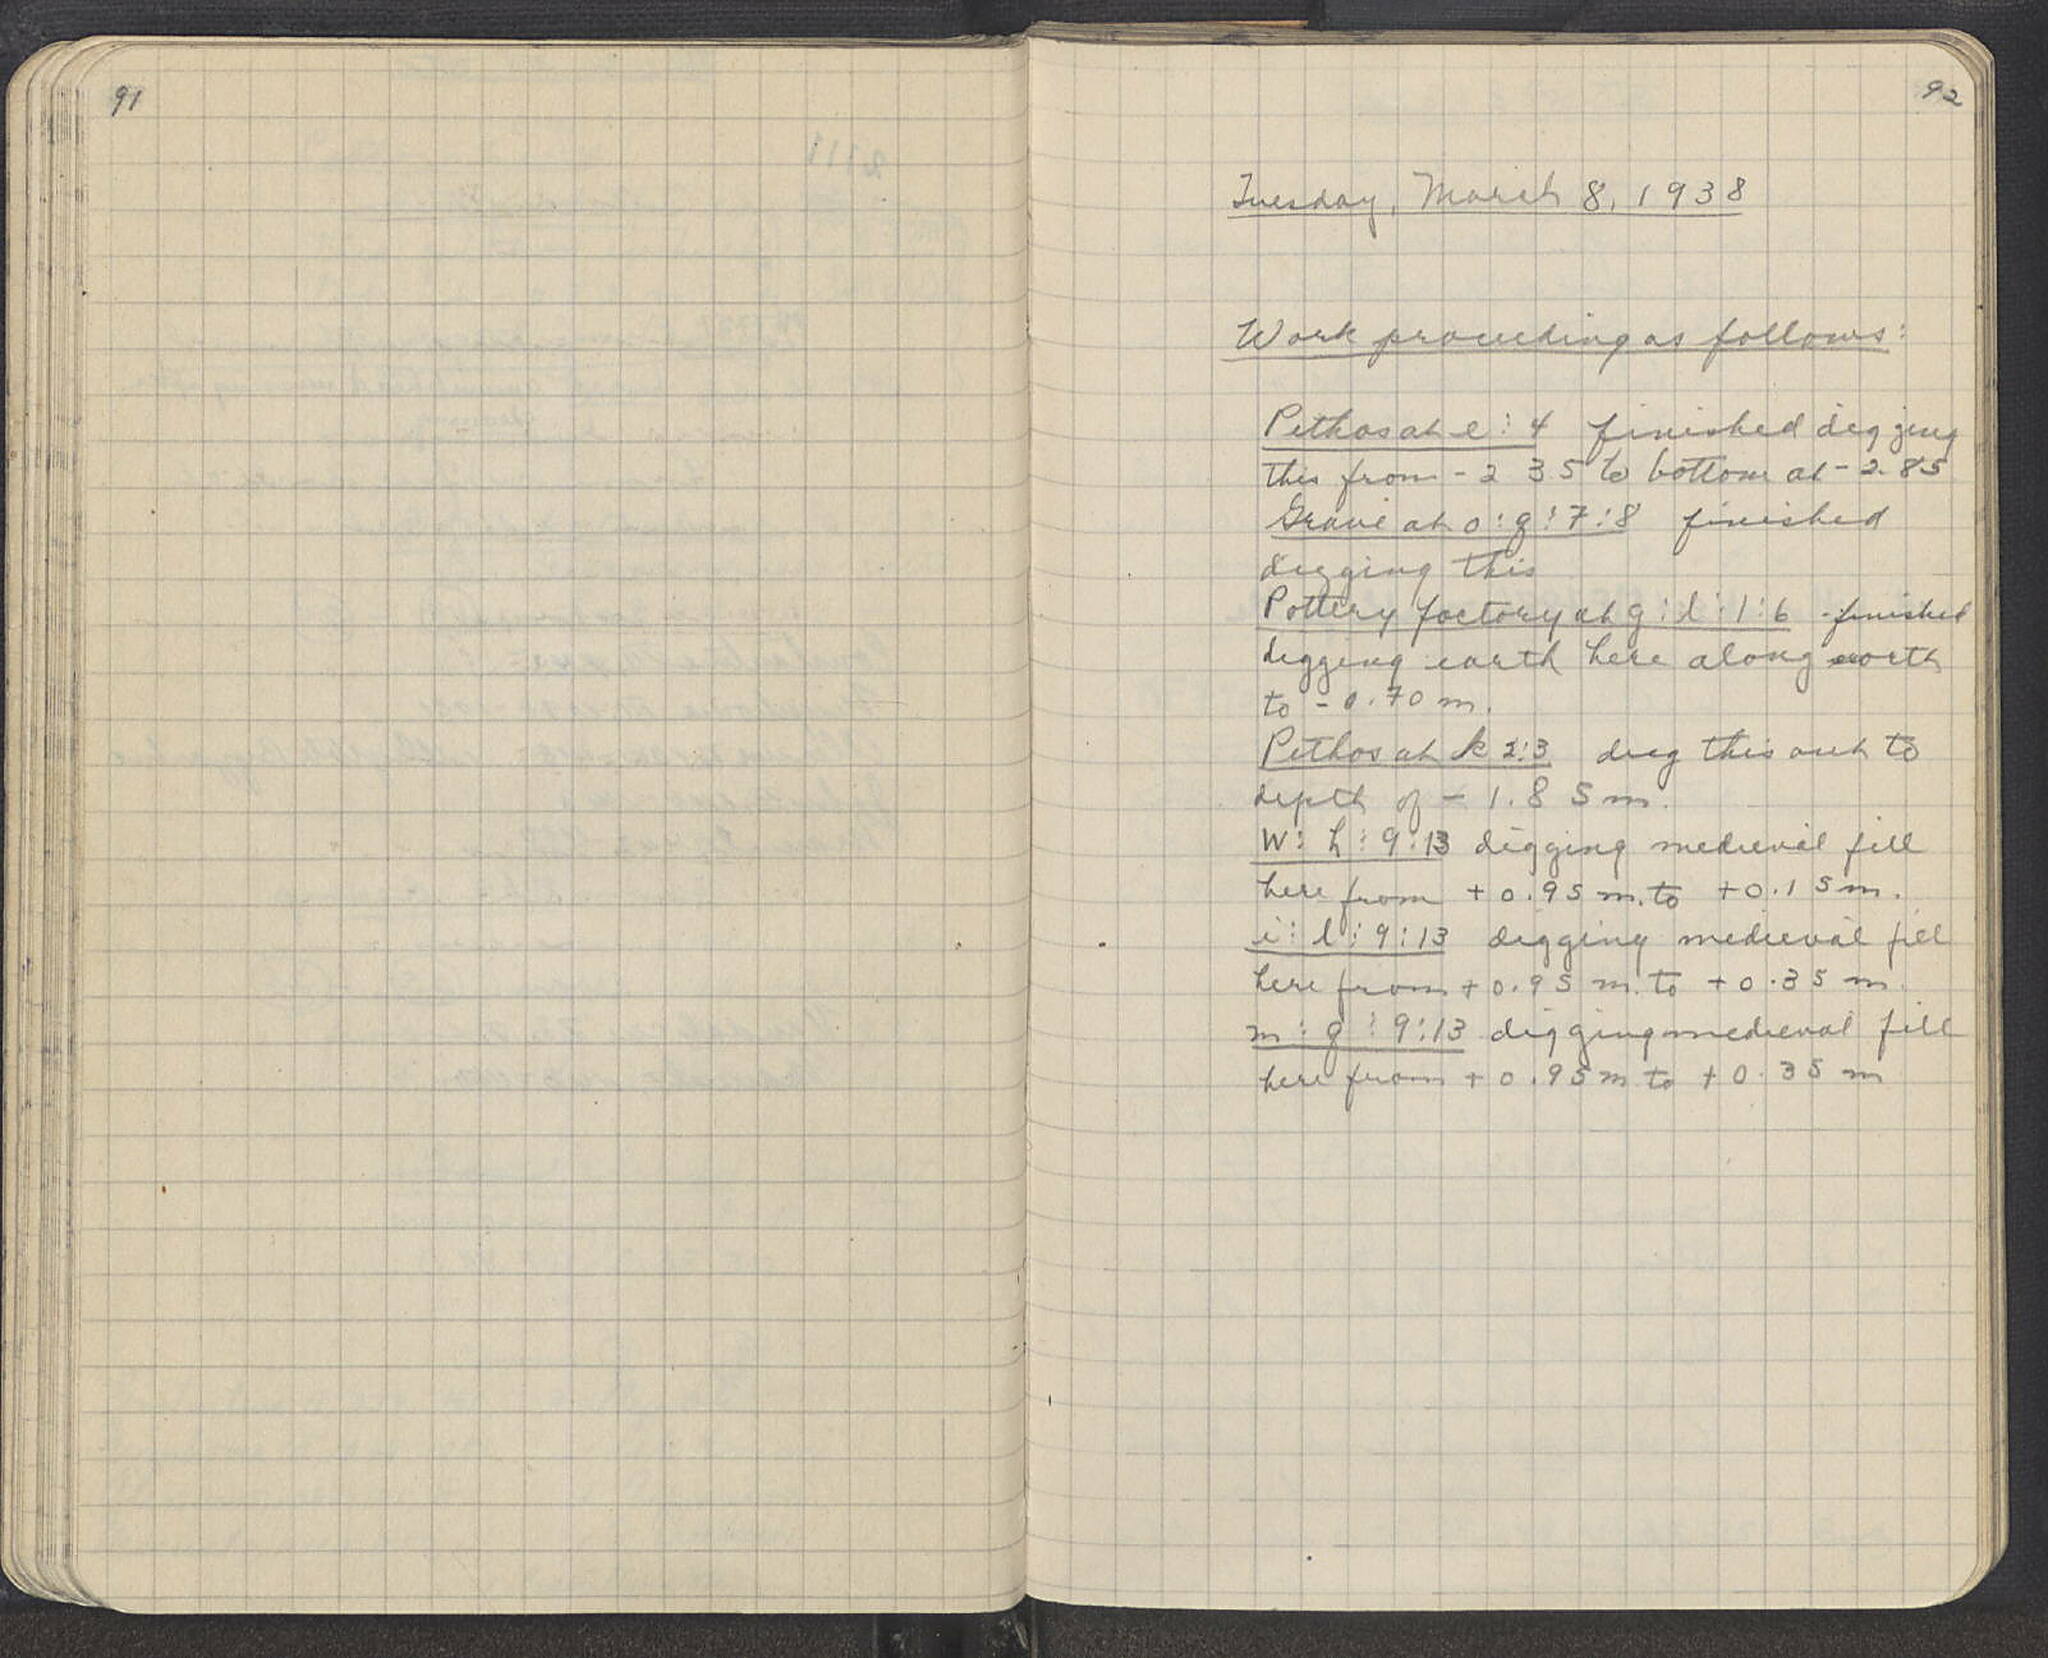 91
92
Tuesday, March 8, 1938
Work proceeding as follows:
Pithos at e:4 finished digging
this from -2 35 to bottom at -2.85
Grave at o:q:7:8 finished
digging this
Pottery factory at g:l:1:6 - finished
digging earth here along north
to -0.70 m.
Pithos at k 2:3 dug this out to
depth of - 1.85 m.
W: h: 9:13 digging medieval fill
here from +0.95 m. to +0.15 m.
i: l: 9:13 digging medieval fill
here from +0.95 m. to +0.35 m.
m: q: 9:13 digging medieval fill
here from +0.95 m to +0.35 m